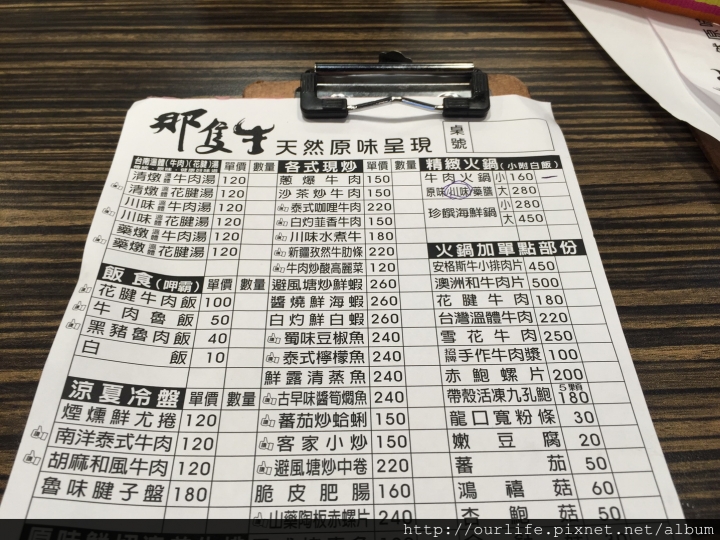 那隻牛 天然原味呈現 桌號
台南溫體(牛肉)(花腱)湯 單價 數量
清燉溫體牛肉湯 120
清燉溫體花腱湯 120
川味溫體牛肉湯 120
川味溫體花腱湯 120
藥燉溫體牛肉湯 120
藥燉溫體花腱湯 120
飯食(呷霸) 單價 數量
花腱牛肉飯 100
牛肉魯飯 50
黑豬魯肉飯 40
白飯 10
涼夏冷盤 單價 數量
煙燻鮮尤捲 120
南洋泰式牛肉 120
胡麻和風牛肉 120
魯味腱子盤 180
各式現炒 單價 數量
蔥爆牛肉 150
沙茶炒牛肉 150
泰式咖哩牛肉 220
白灼韮香牛肉 150
川味水煮牛 180
新疆孜然牛肋條 220
牛肉炒酸高麗菜 120
避風塘炒鮮蝦 260
醬燒鮮海蝦 260
白灼鮮白蝦 260
蜀味豆椒魚 240
泰式檸檬魚 240
鮮露清蒸魚 240
古早味醬筍燜魚 240
蕃茄炒蛤蜊 150
客家小炒 150
避風塘炒中卷 220
脆皮肥腸 160
山藥陶板赤螺片 240
精緻火鍋(小附白飯)
牛肉火鍋 小 160 一
原味 川味 藥膳 大 280
珍饌海鮮鍋 小 280
大 450
火鍋加單點部份
安格斯牛小排肉片 450
澳洲和牛肉片 500
花腱牛肉 180
台灣溫體牛肉 220
雪花牛肉 250
手作牛肉漿 100
赤鮑螺片 200
帶殼活凍九孔鮑 5顆 180
龍口寬粉條 30
嫩豆腐 20
蕃茄 50
鴻禧菇 60
杏鮑菇 50
http://ourlife.pixnet.net/album